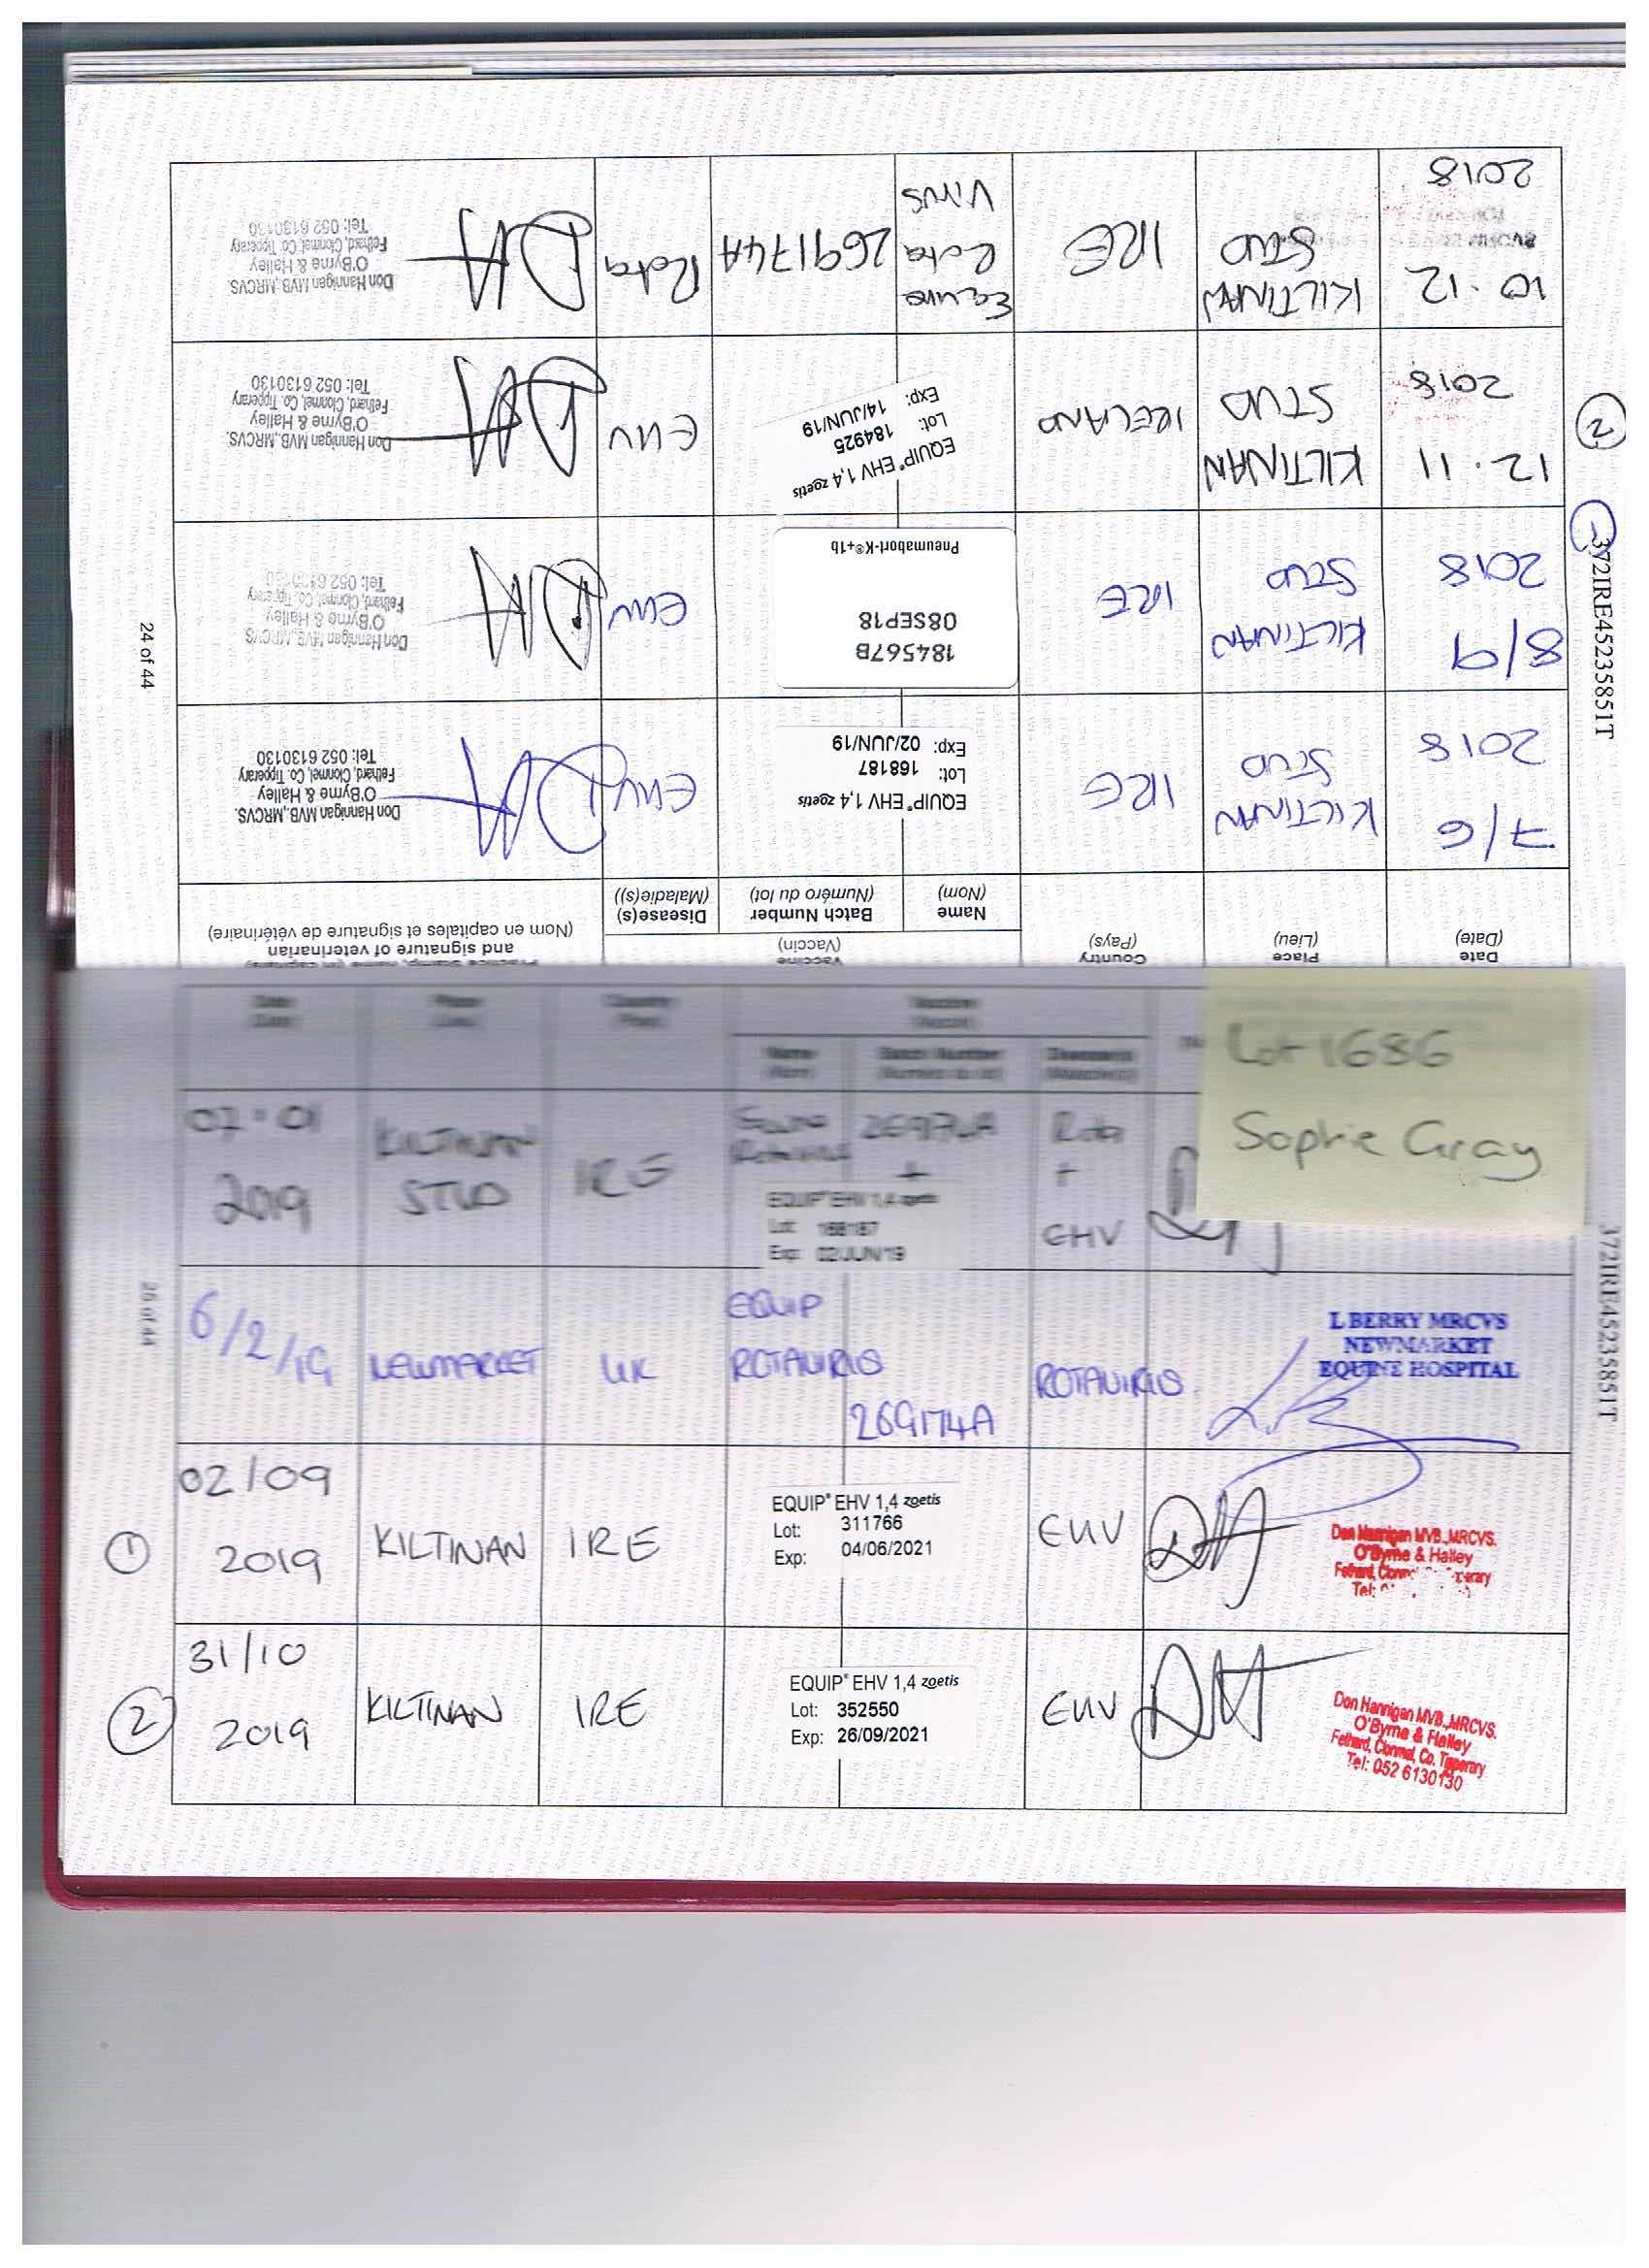 24 of 44
372IRE45235851T
Date
(Date)
Place
(Lieu)
Country
(Pays)
Vaccine
(Vaccin)
Name
(Nom)
Batch Number
(Numéro du lot)
Disease(s)
(Maladie(s))
and signature of veterinarian
(Nom en capitales et signature de vétérinaire)
7/6
2018
KILTINAN
STUD
IRE
EQUIP® EHV 1,4 zoetis
Lot: 168187
Exp: 02/JUN/19
EHV
Don Hannigan MVB.,MRCVS.
O'Byrne & Halley
Fethard, Clonmel, Co. Tipperary
Tel: 052 6130130
8/9
2018
KILTINAN
STUD
IRE
184567B
08SEP18
Pneumabort-K®+1b
EHV
Don Hannigan MVB.,MRCVS
O'Byrne & Halley
Fethard, Clonmel, Co. Tipperary
Tel: 052 6130130
2
12.11
2018
KILTINAN
STUD
IRELAND
EQUIP® EHV 1,4 zoetis
Lot: 184925
Exp: 14/JUN/19
EHV
Don Hannigan MVB.,MRCVS.
O'Byrne & Halley
Fethard, Clonmel, Co. Tipperary
Tel: 052 6130130
10.12
2018
KILTINAN
STUD
IRE
Equine
Rota
Virus
269174A
Rota
Don Hannigan MVB.,MRCVS.
O'Byrne & Halley
Fethard, Clonmel, Co. Tipperary
Tel: 052 6130130
25 of 44
372IRE45235851T
Lot 1686
Sophie Gray
Name
Batch Number
07.01
2019
KILTINAN
STUD
IRE
Equine
Rotavirus
269174A
+
EQUIP® EHV 1,4 zoetis
Lot: 168187
Exp: 02/JUN/19
Rota
+
EHV
6/2/19
NEWMARKET
UK
EQUIP
ROTAVIRUS
269174A
ROTAVIRUS
L BERRY MRCVS
NEWMARKET
EQUINE HOSPITAL
1
02/09
2019
KILTINAN
IRE
EQUIP® EHV 1,4 zoetis
Lot: 311766
Exp: 04/06/2021
EHV
Don Hannigan MVB.,MRCVS.
O'Byrne & Halley
2
31/10
2019
KILTINAN
IRE
EQUIP® EHV 1,4 zoetis
Lot: 352550
Exp: 26/09/2021
EHV
Don Hannigan MVB.,MRCVS.
O'Byrne & Halley
Fethard, Clonmel, Co. Tipperary
Tel: 052 6130130